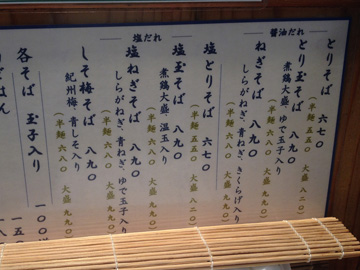 醤油だれ
とりそば 六七〇
（半麺 五五〇 大盛 八二〇）
とり玉そば 八九〇
煮鶏大盛・ゆで玉子入り
（半麺 六八〇 大盛 九九〇）
ねぎそば 八九〇
しらがねぎ・青ねぎ・きくらげ入り
（半麺 六八〇 大盛 九九〇）
塩だれ
塩とりそば 六七〇
（半麺 五五〇 大盛 八二〇）
塩玉そば 八九〇
煮鶏大盛・温玉入り
（半麺 六八〇 大盛 九九〇）
塩ねぎそば 八九〇
しらがねぎ・青ねぎ・ゆで玉子入り
（半麺 六八〇 大盛 九九〇）
しそ梅そば 八九〇
紀州梅・青しそ入り
（半麺 六八〇 大盛 九九〇）
各そば 玉子入り
一〇〇
一五〇